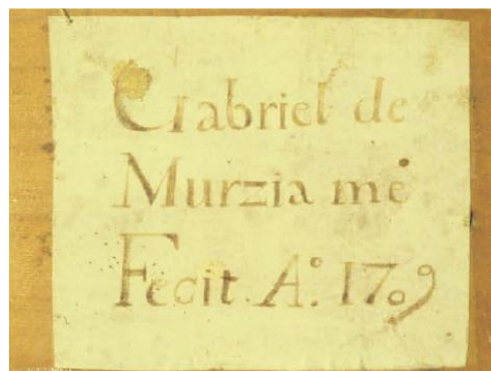 Gabriel de
Murzia me
Fecit. A.º 1709